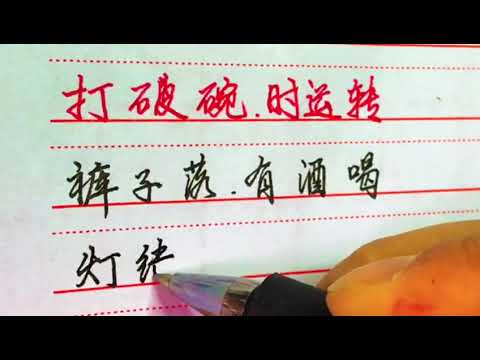 打破碗.时运转
裤子落.有酒喝
灯